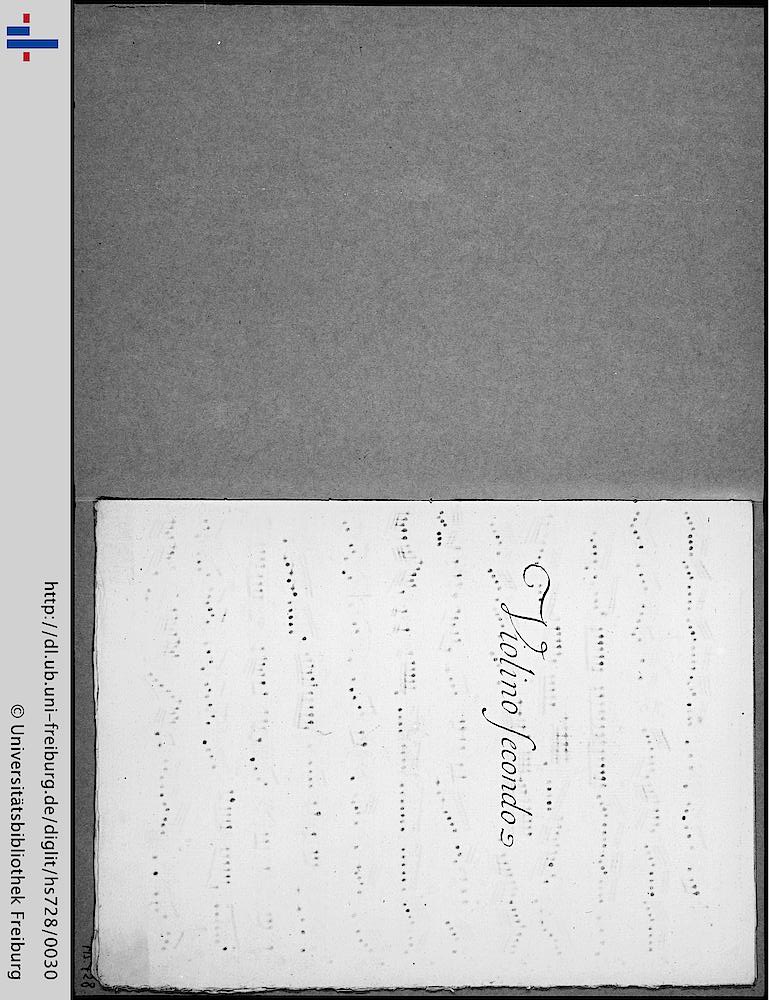 Violino secondo
http://dl.ub.uni-freiburg.de/diglit/hs728/0030
© Universitätsbibliothek Freiburg